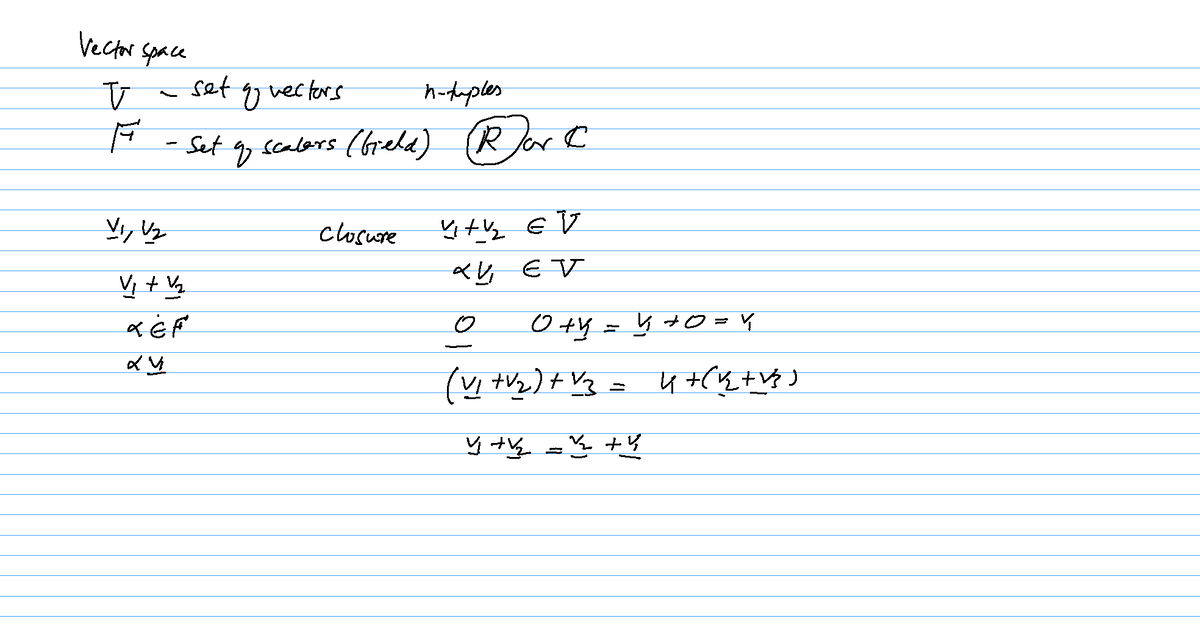 Vector space
V - set of vectors n-tuples
F - Set of scalars (field) R or C
v₁, v₂ closure v₁ + v₂ ∈ V
αv₁ ∈ V
v₁ + v₂
α ∈ F 0 0 + v₁ = v₁ + 0 = v₁
αv₁
(v₁ + v₂) + v₃ = v₁ + (v₂ + v₃)
v₁ + v₂ = v₂ + v₁